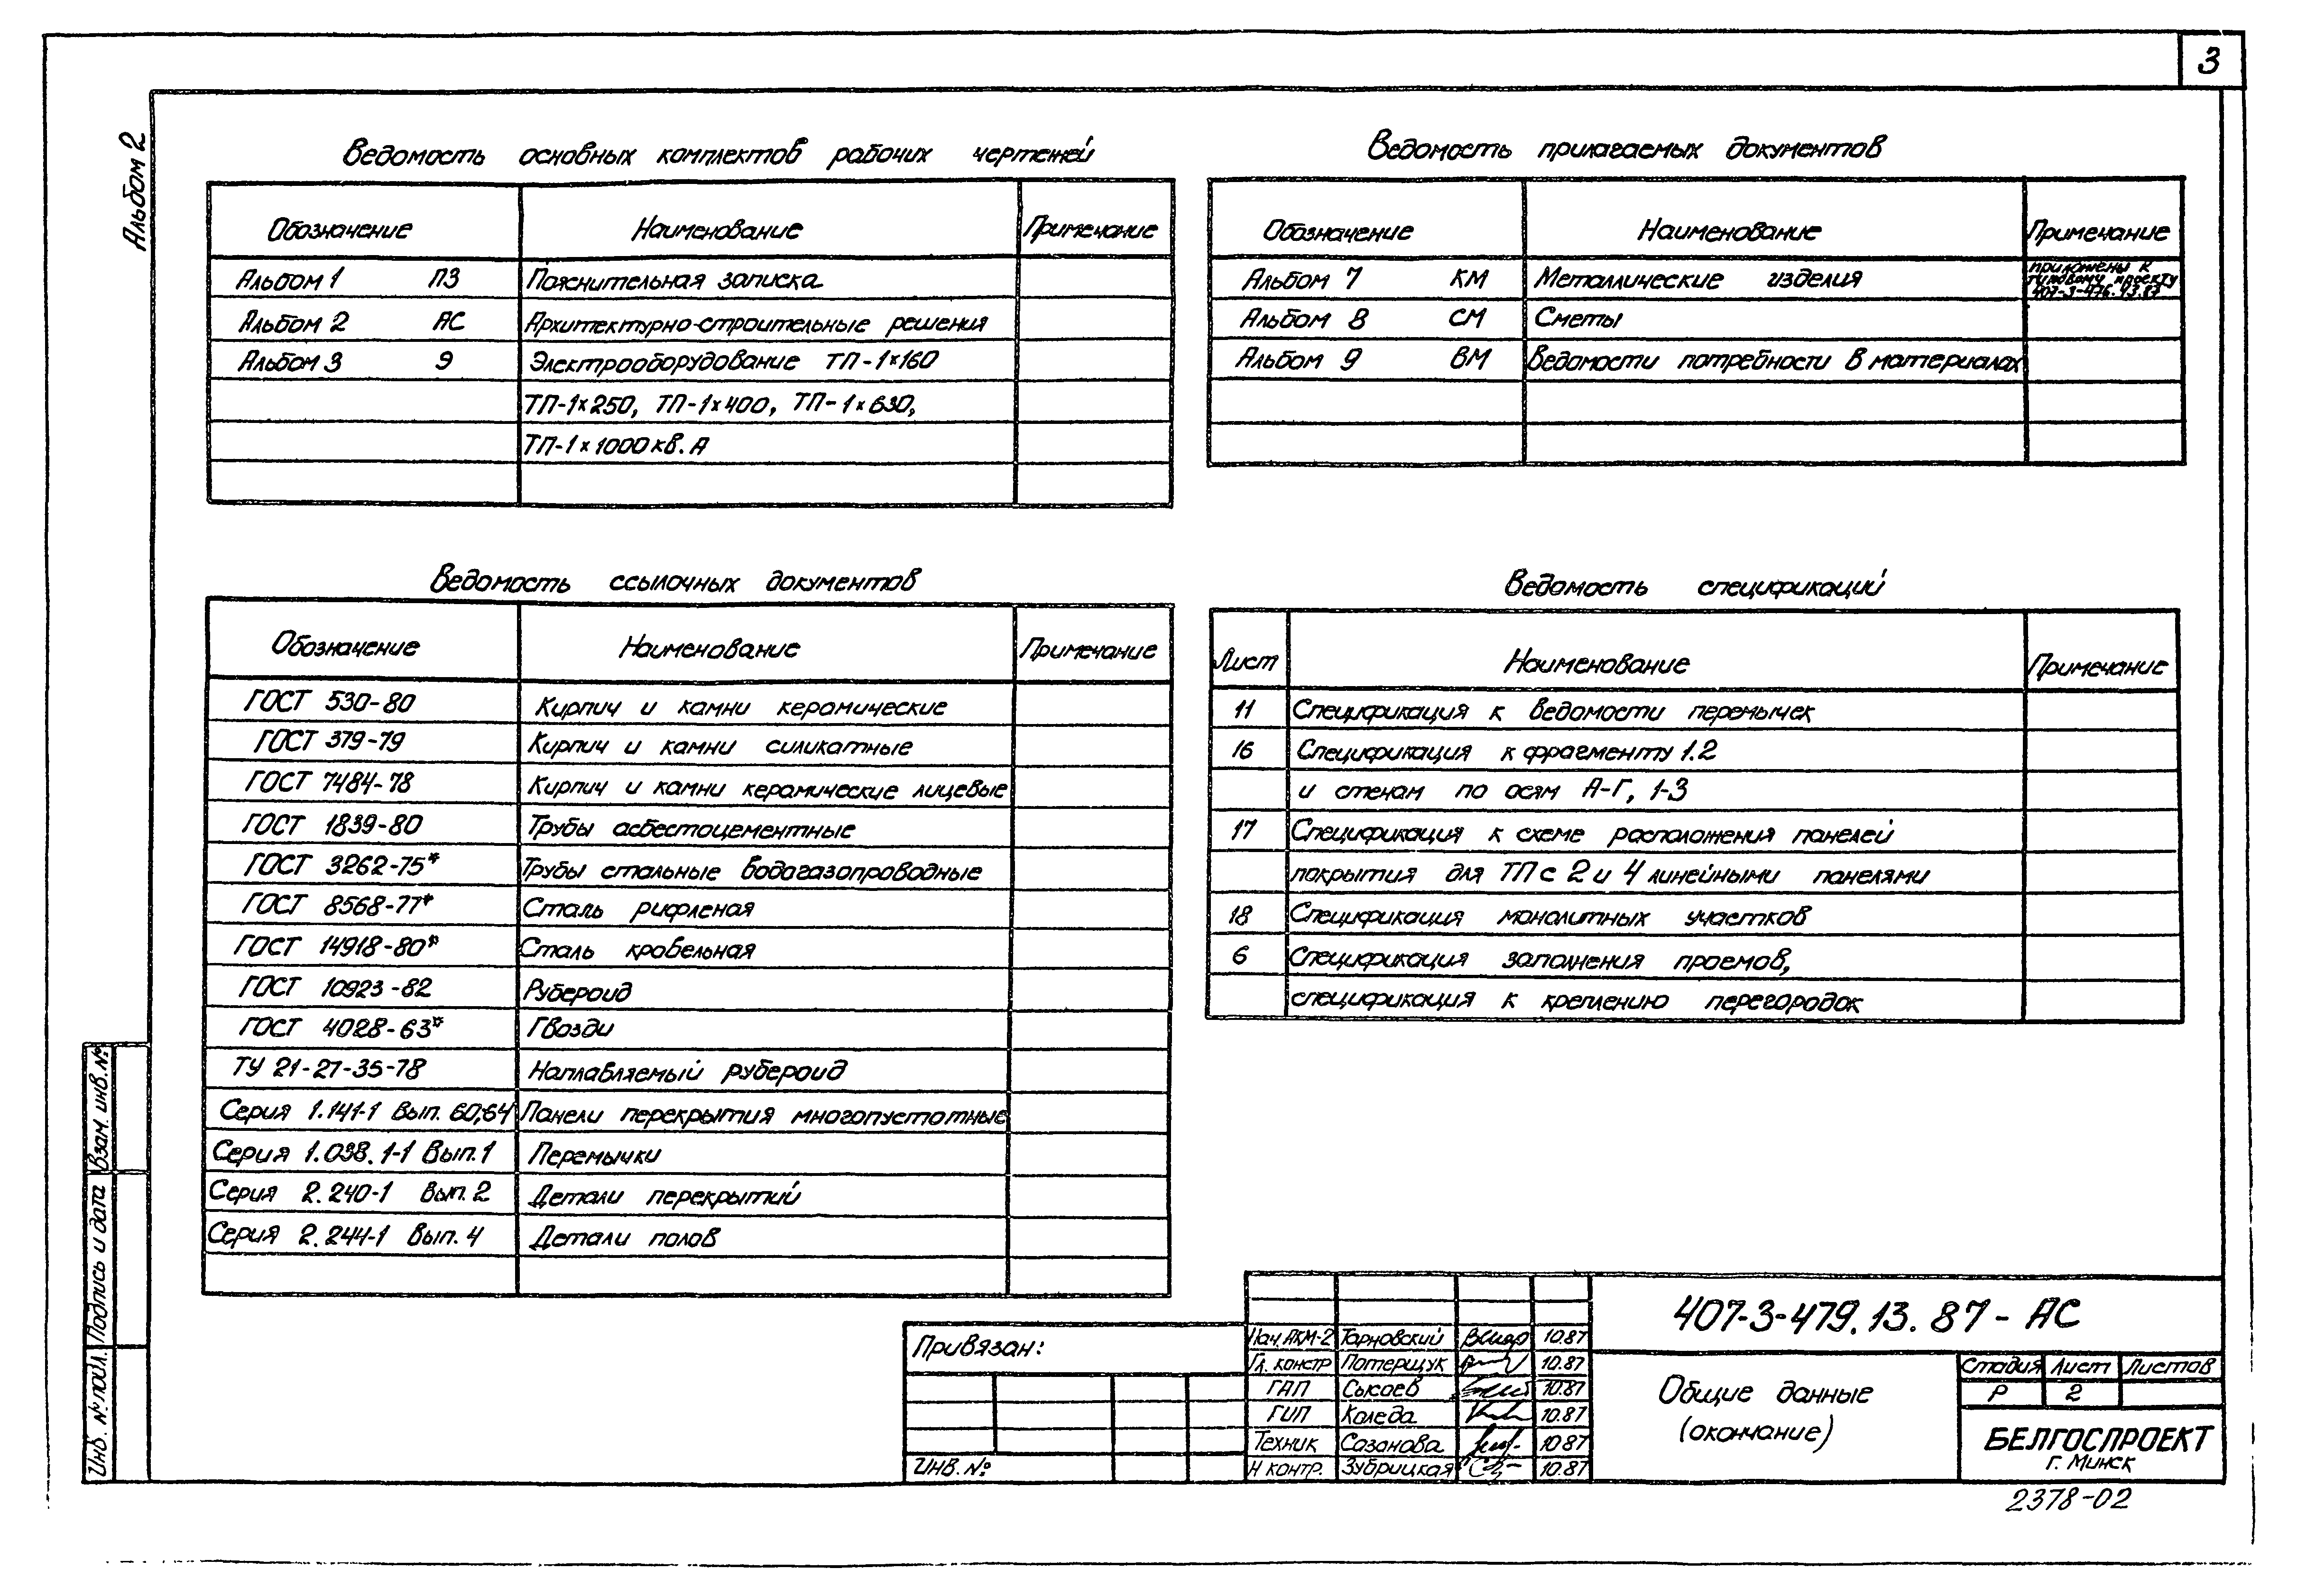 3
Альбом 2
Ведомость основных комплектов рабочих чертежей
Обозначение Наименование Примечание
Альбом 1 ПЗ Пояснительная записка
Альбом 2 АС Архитектурно-строительные решения
Альбом 3 Э Электрооборудование ТП-1×160
ТП-1×250, ТП-1×400, ТП-1×630,
ТП-1×1000 кв.А
Ведомость прилагаемых документов
Обозначение Наименование Примечание
Альбом 7 КМ Металлические изделия приложены к
типовому проекту
407-3-476.43.87
Альбом 8 СМ Сметы
Альбом 9 ВМ Ведомости потребности в материалах
Ведомость ссылочных документов
Обозначение Наименование Примечание
ГОСТ 530-80 Кирпич и камни керамические
ГОСТ 379-79 Кирпич и камни силикатные
ГОСТ 7484-78 Кирпич и камни керамические лицевые
ГОСТ 1839-80 Трубы асбестоцементные
ГОСТ 3262-75* Трубы стальные водогазопроводные
ГОСТ 8568-77* Сталь рифленая
ГОСТ 14918-80* Сталь кровельная
ГОСТ 10923-82 Рубероид
ГОСТ 4028-63* Гвозди
ТУ 21-27-35-78 Наплавляемый рубероид
Серия 1.141-1 Вып. 60,64 Панели перекрытия многопустотные
Серия 1.038.1-1 Вып.1 Перемычки
Серия 2.240-1 Вып. 2 Детали перекрытий
Серия 2.244-1 Вып. 4 Детали полов
Ведомость спецификаций
Лист Наименование Примечание
11 Спецификация к ведомости перемычек
16 Спецификация к фрагменту 1.2
и стенам по осям А-Г, 1-3
17 Спецификация к схеме расположения панелей
покрытия для ТП с 2 и 4 линейными панелями
18 Спецификация монолитных участков
6 Спецификация заполнения проемов,
спецификация к креплению перегородок
Взам. инв. №
Подпись и дата
Инв. № подл.
Привязан:
Инв. №
Нач. АКМ-2 Тарновский 10.87
Гл. констр Потерщук 10.87
ГАП Сысоев 10.87
ГИП Коледа 10.87
Техник Сазанова 10.87
Н контр. Зубрицкая 10.87
407-3-479.13.87-АС
Общие данные
(окончание)
Стадия Лист Листов
Р 2
БЕЛГОСПРОЕКТ
г. Минск
2378-02